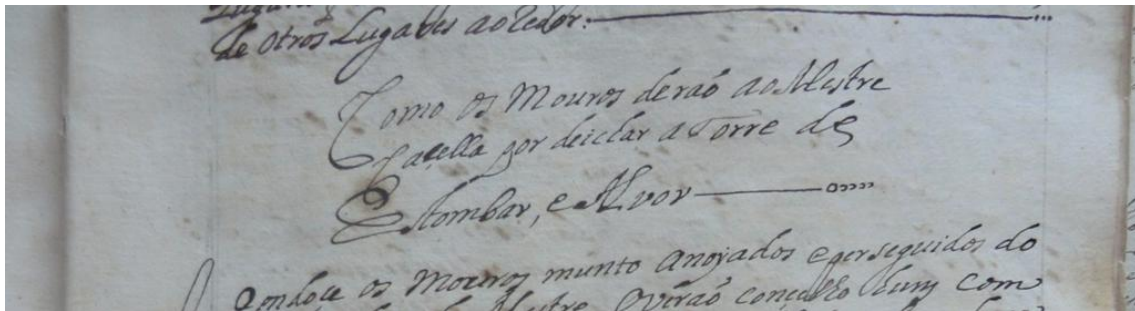 de otros Lugares ao Redor:
Como os Mouros deraõ ao Mestre
Caçella por deichar a Torre de
Estombar, e Alvor
os Mouros munto anojados e perseguidos do
Mestre ouveraõ concelho huns com